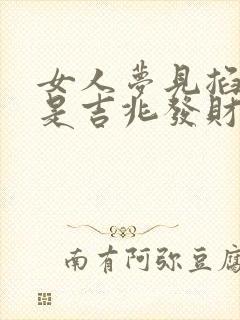 女人夢見掐
是吉兆發財
南有阿弥豆腐